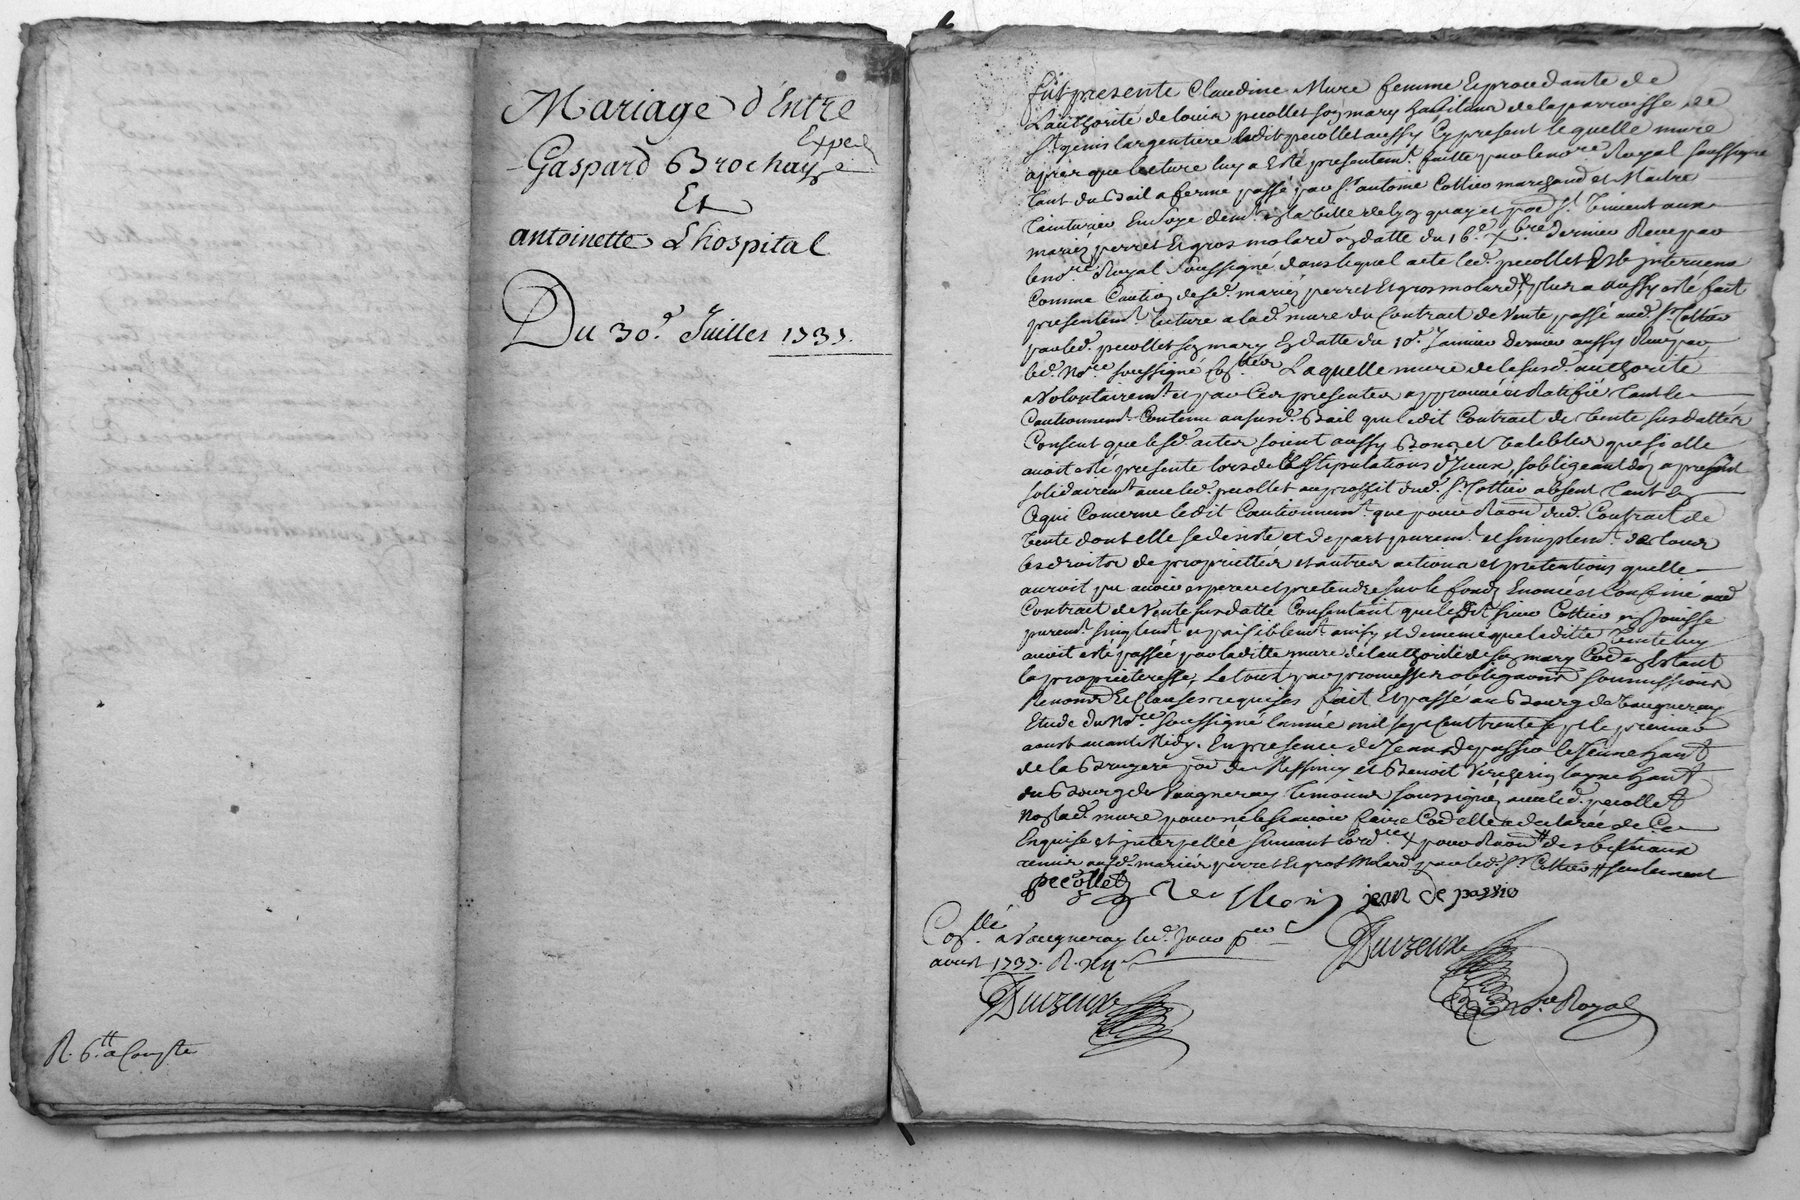 Mariage d'Entre
Exped
Gaspard Brochay
Et
antoinette Lhospital
Du 30e. Juillet 1737.
R. 6tt a Compte
fut presente Claudine Mure femme Eprocedante de
L'authorité de louis pecollet son mary habitans de la parroisse de
St. genis largentiere ledit pecollet aussy Cy present lequelle mure
apres que lecture luy a Esté presentemt. faitte par le nore. Royal soussigné
tant du Bail a ferme passé par Sr. antoine Cottier marchand et Maitre
Tainturier En soye demt. en la ville de lyon quay et psse St. Vincent aux
mariez perret Et gros molard en datte du 16e. Xbre dernier Receu par
le nore. Royal soussigné dans lequel acte led. pecollet Est intervenu
Comme Caution desd. mariez perret Et gros molard, X plus a aussy esté fait
presentemt. lecture a lad. mure du Contrait de Vente passé aud. Sr. Cottier
par led. pecollet son mary En datte du 10e. Janvier dernier aussy Receu par
led. Nore. soussigné Laquelle mure de la susd. authorité
a Volontairemt. et par Ces presentes approuvé et Ratifié tant le
Cautionnemt. Contenu au susd. Bail que ledit Contrait de Vente susdatter
Consent que lesd. actes soient aussy Bons et Valables que si elle
avoit esté presente lors de les stipulations d'Iceux, sobligeant dez a present
solidairemt. avec led. pecollet au proffit dud. Sr. Cottier absent tant En
Ce qui Concerne ledit Cautionnemt. que pour Raon dud. Contrait de
Vente dont elle se desiste et depart puremt. et simplemt. de tous
les droits de proprietter et autres actions et pretentions quelle
auroit pu avoir esperer et pretendre sur le fond Enoncé et Confiné aud
Contrait de Vente susdatté Consentant que ledit sieur Cottier en Jouisse
puremt. simplemt. et paisiblemt. ainsy et de meme que la ditte Vente luy
avoit esté passée par laditte mure de lauthorité de son mary Coe en Estant
la proprieteresse, Le tout par promesses obligaons soumissions
Renons Et Clauses requises fait Et passé au Bourg de Vaugneray
Etude du Nore. soussigné lannée mil sept Cent trente sept le premier
aoust avant Midy. En presence de Jean Depassio le Jeune habt
de la Bruyere psse de Messimy et Benoit Vergerin layne habt
du Bourg de Vaugneray temoins soussignez avec led. pecollet
Non lad. mure pour ne le scavoir faire Coe elle a declarée de Ce
Enquise et interpellée suivant lordce X pour Raon # des bestiaux
remis ausd. mariez perret Et gros Molard par led. Sr. Cottier # seulement
pecollet
jean de passio
Collé. a Vaugneray led. Jour per
aoust 1737. R. XII s
Duvzeux
Duvzeux
Nore. Royal